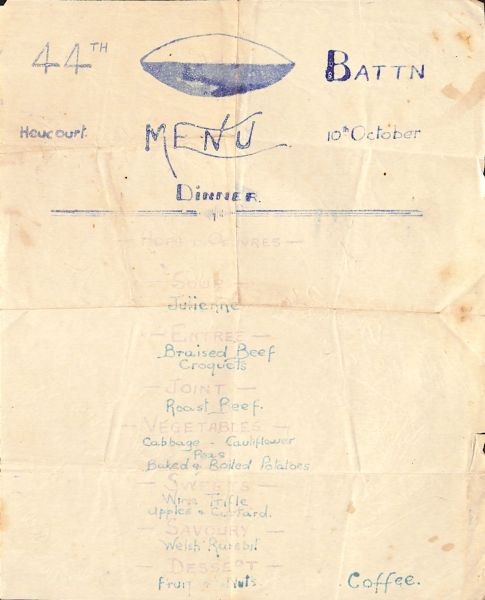 44TH BATTN
Heucourt. MENU 10th October
DINNER.
- HORS D'OEUVRES -
- SOUP -
Julienne
- ENTREE -
Braised Beef
Croquets
- JOINT -
Roast Beef.
- VEGETABLES -
Cabbage - Cauliflower
Peas
Baked & Boiled Potatoes
- SWEETS -
Wine Trifle
Apples & Custard.
- SAVOURY -
Welsh Rarebit
- DESSERT -
Fruit & Nuts Coffee.